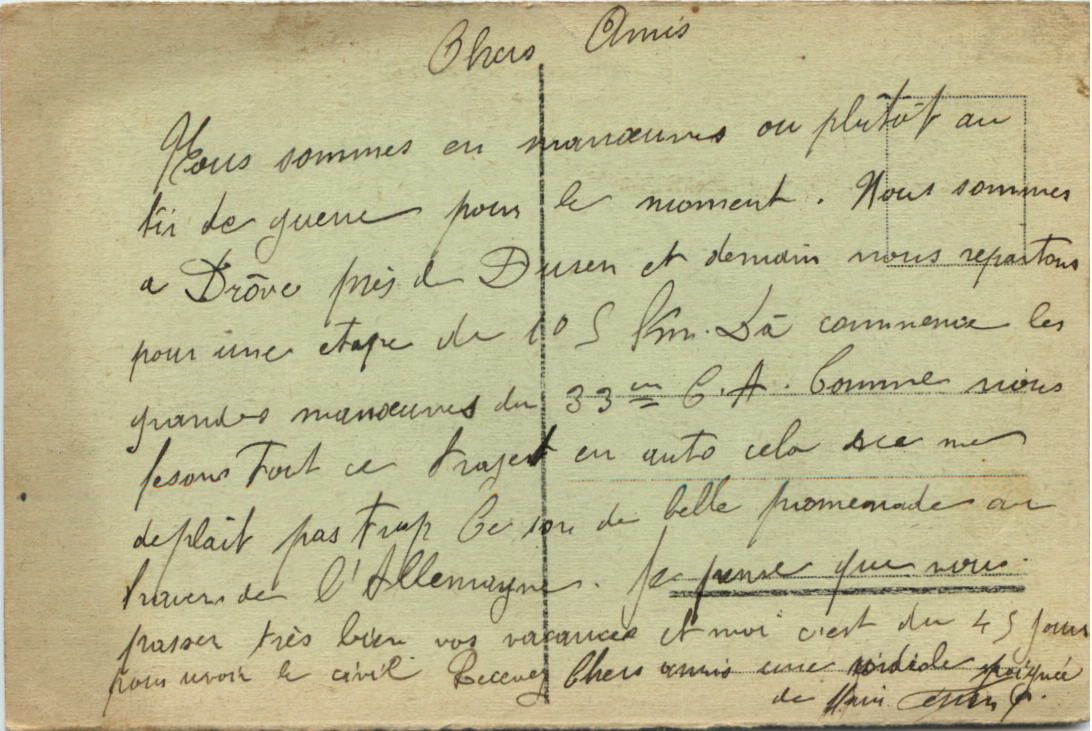 Chers Amis
Nous sommes en manœuvres ou plutôt au
tir de guerre pour le moment. Nous sommes
a Drôve près de Duren et demain nous repartons
pour une etape de 105 Km. Là commence les
grandes manœuvres du 33em C.A. Comme nous
fesons tout ce trajet en auto cela ne me
deplait pas trop Ce son de belle promenade au
travers de l'Allemagne. Je pense que vous
passer très bien vos vacances et moi c'est du 45 jours
pour revoir le civil Recevez Chers amis une poignée
de Main